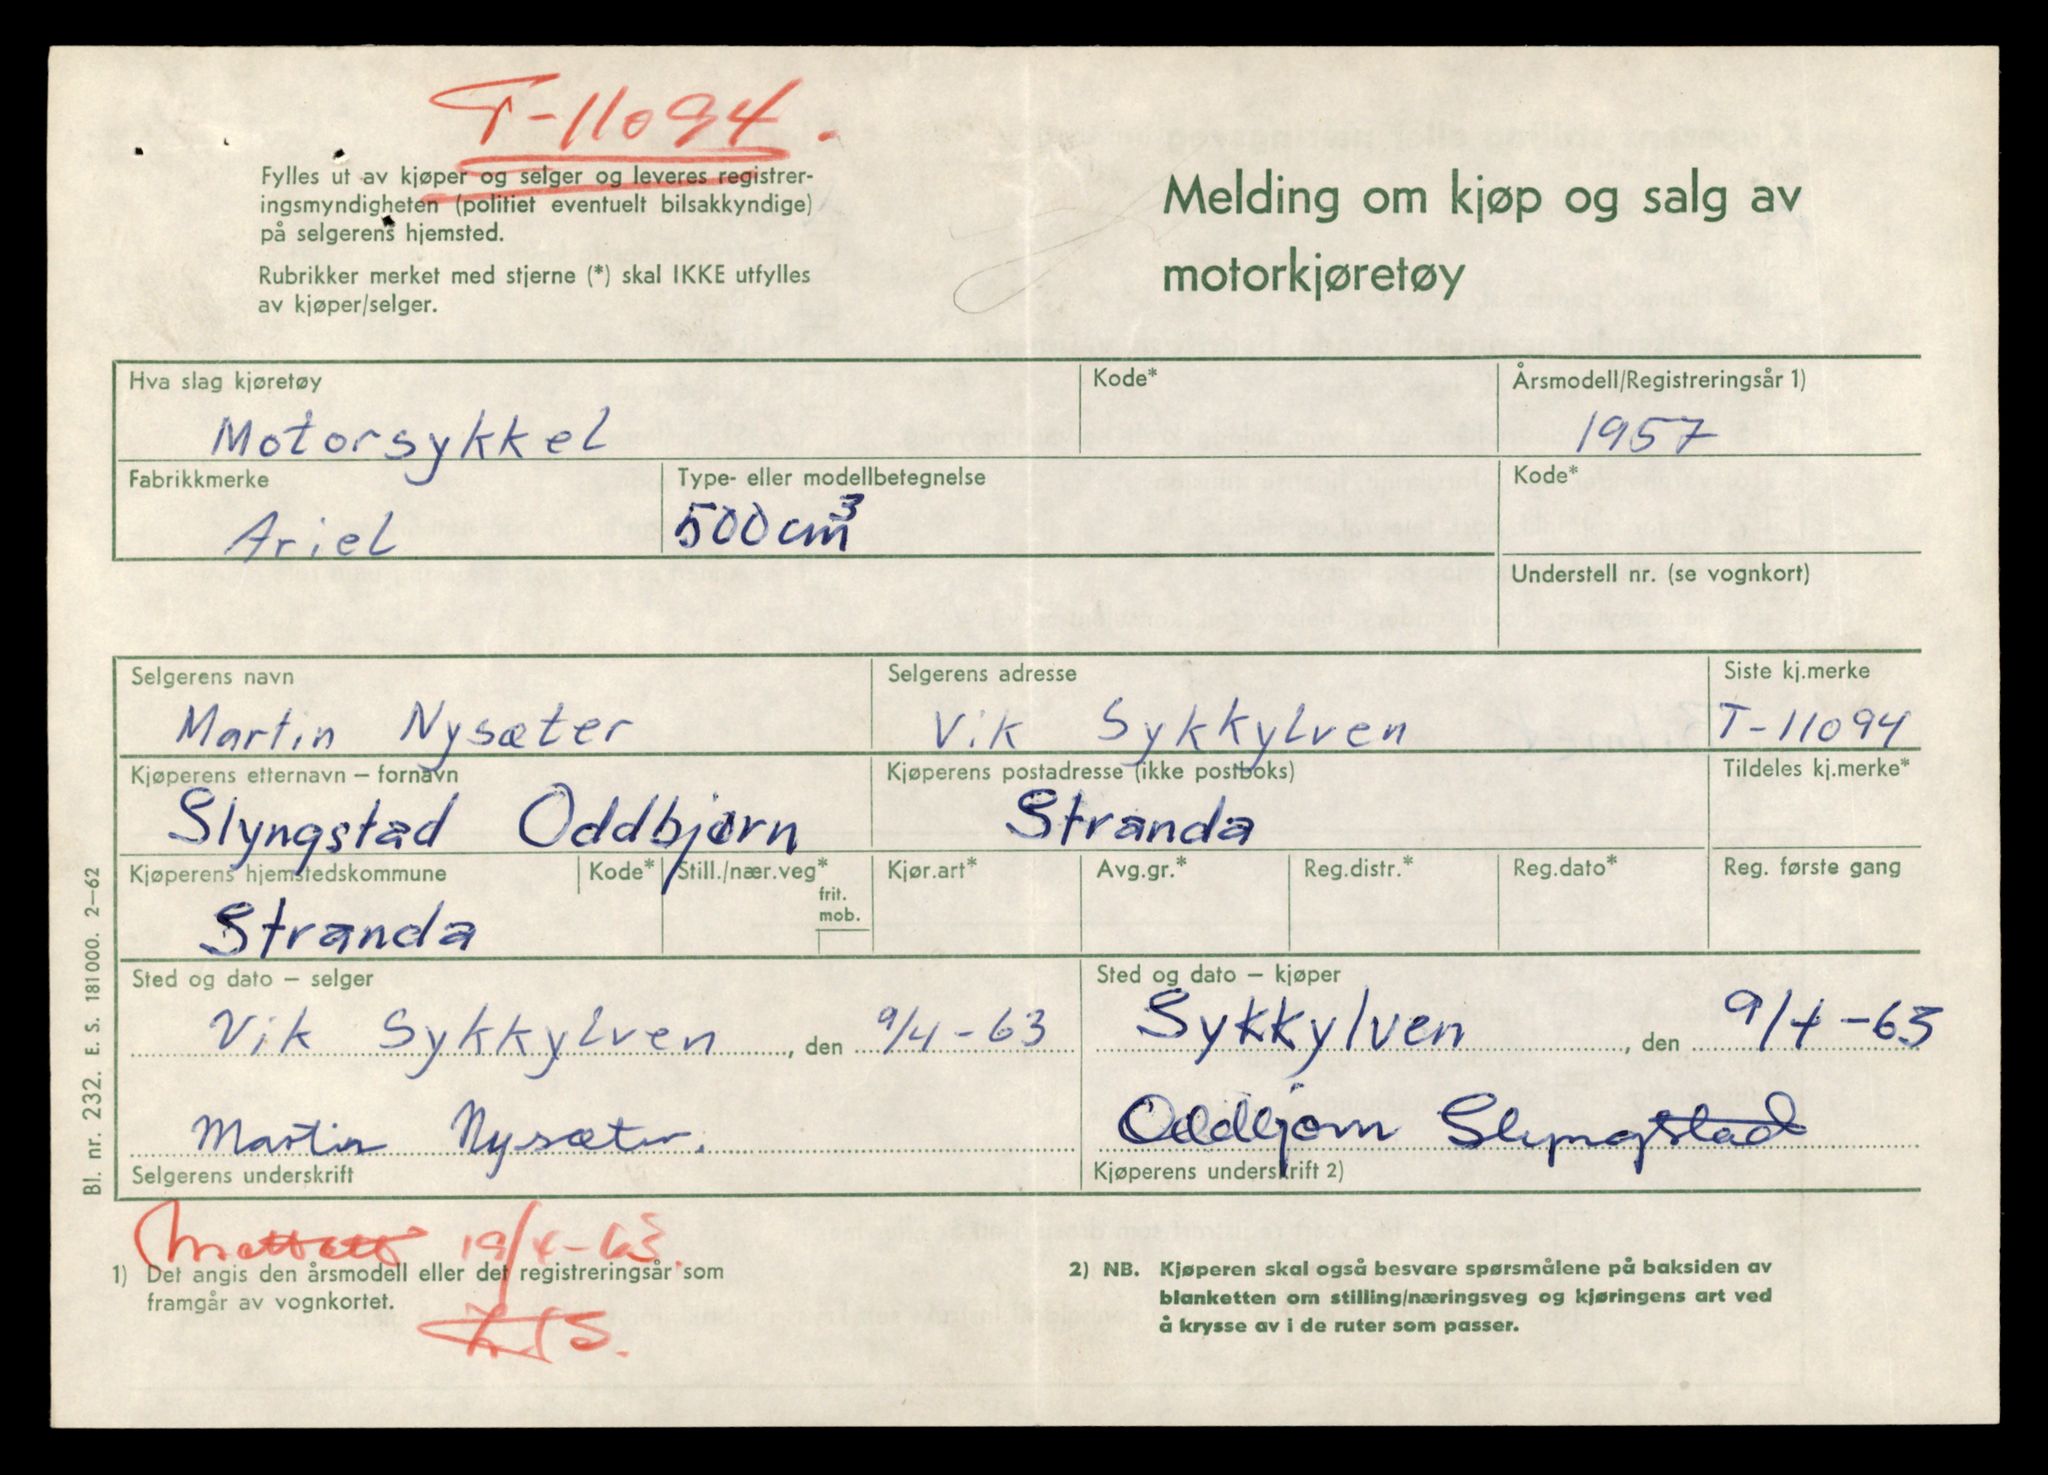 T-11094.
Fylles ut av kjøper og selger og leveres registrer-
ingsmyndigheten (politiet eventuelt bilsakkyndige)
på selgerens hjemsted.
Rubrikker merket med stjerne (*) skal IKKE utfylles
av kjøper/selger.
Melding om kjøp og salg av
motorkjøretøy
Hva slag kjøretøy
Motorsykkel
Kode*
Årsmodell/Registreringsår 1)
1957
Fabrikkmerke
Ariel
Type- eller modellbetegnelse
500 cm³
Kode*
Understell nr. (se vognkort)
Selgerens navn
Martin Nysæter
Selgerens adresse
Vik Sykkylven
Siste kj.merke
T-11094
Kjøperens etternavn – fornavn
Slyngstad Oddbjørn
Kjøperens postadresse (ikke postboks)
Stranda
Tildeles kj.merke*
Kjøperens hjemstedskommune
Stranda
Kode*
Still./nær.veg*
frit.
mob.
Kjør.art*
Avg.gr.*
Reg.distr.*
Reg.dato*
Reg. første gang
Sted og dato – selger
Vik Sykkylven, den 9/4-63
Sted og dato – kjøper
Sykkylven, den 9/4-63
Martin Nysæter.
Selgerens underskrift
Oddbjørn Slyngstad
Kjøperens underskrift 2)
Bl. nr. 232. E. S. 181000. 2–62
19/4-63.
1) Det angis den årsmodell eller det registreringsår som
framgår av vognkortet.
2) NB. Kjøperen skal også besvare spørsmålene på baksiden av
blanketten om stilling/næringsveg og kjøringens art ved
å krysse av i de ruter som passer.